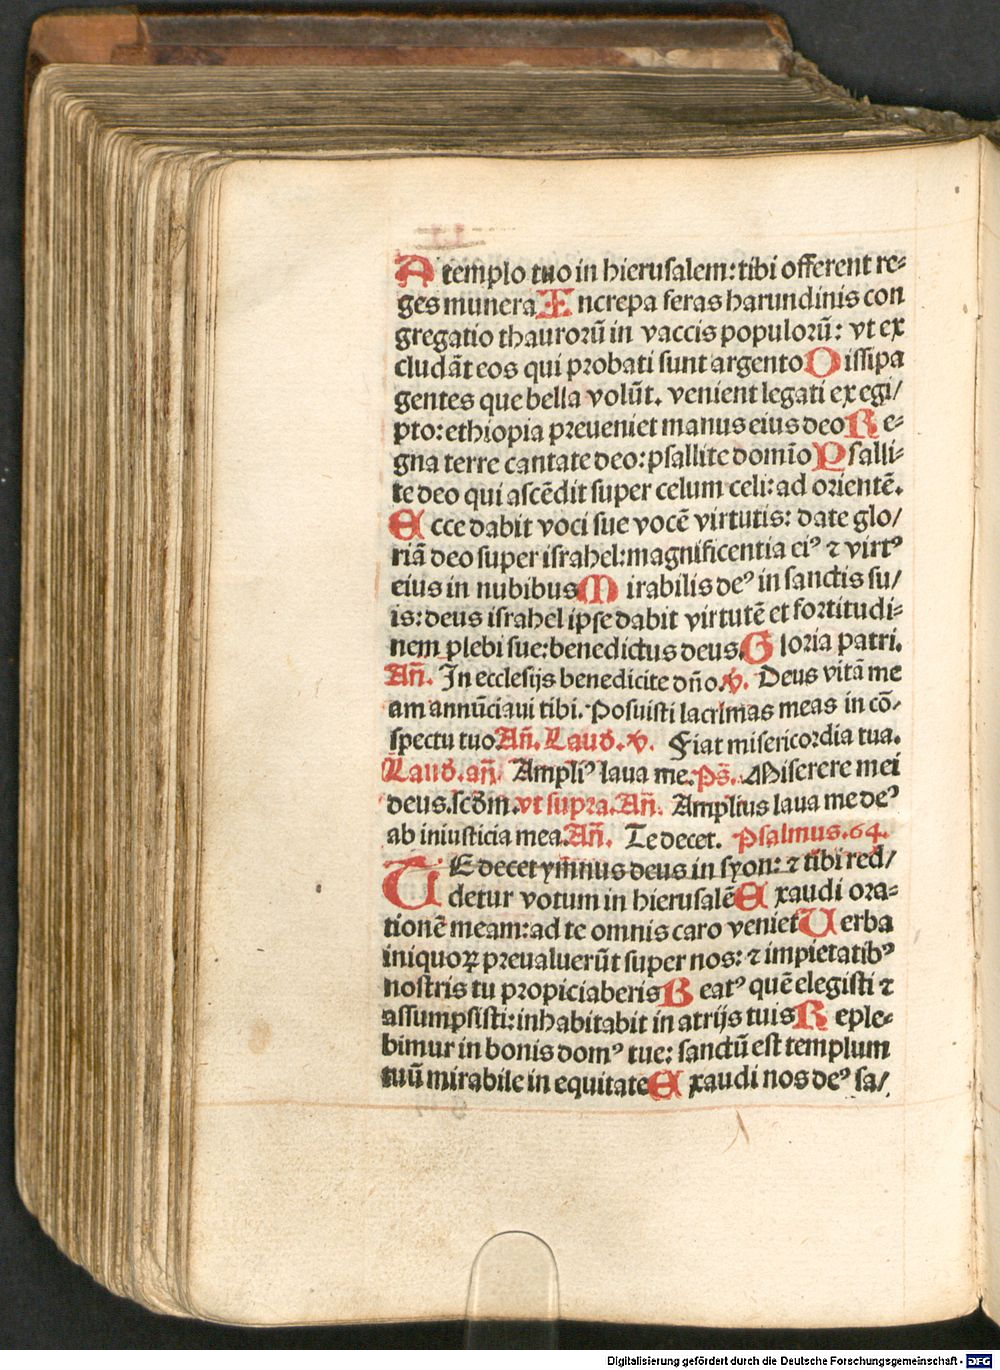 A templo tuo in hierusalem: tibi offerent re⸗
ges munera Increpa feras harundinis con
gregatio thaurorū in vaccis populorū: vt ex
cludāt eos qui probati sunt argento Dissipa
gentes que bella volūt. venient legati ex egi/
pto: ethiopia preueniet manus eius deo Re⸗
gna terre cantate deo: psallite domīo Psalli⸗
te deo qui ascēdit super celum celi: ad orientē.
Ecce dabit voci sue vocē virtutis: date glo/
riā deo super israhel: magnificentia eiꝰ ⁊ virtꝰ
eius in nubibus Mirabilis deꝰ in sanctis su/
is: deus israhel ipse dabit virtutē et fortitudi⸗
nem plebi sue: benedictus deus. Gloria patri.
Añ. In ecclesijs benedicite dño. v. Deus vitā me
am annūciaui tibi. Posuisti lacrimas meas in cō⸗
spectu tuo Añ. Laud. v. Fiat misericordia tua.
Laud. añ. Ampliꝰ laua me. Ps̄. Miserere mei
deus. scdm. vt supra. Añ. Amplius laua me deꝰ
ab iniusticia mea. Añ. Te decet. Psalmus. 64.
TE decet ymnus deus in syon: ⁊ tibi red/
detur votum in hierusalē Exaudi ora⸗
tionē meam: ad te omnis caro veniet Uerba
iniquoꝝ preualuerūt super nos: ⁊ impietatibꝰ
nostris tu propiciaberis Beatꝰ quē elegisti ⁊
assumpsisti: inhabitabit in atrijs tuis Reple⸗
bimur in bonis domꝰ tue: sanctū est templum
tuū mirabile in equitate Exaudi nos deꝰ sa/
Digitalisierung gefördert durch die Deutsche Forschungsgemeinschaft - DFG